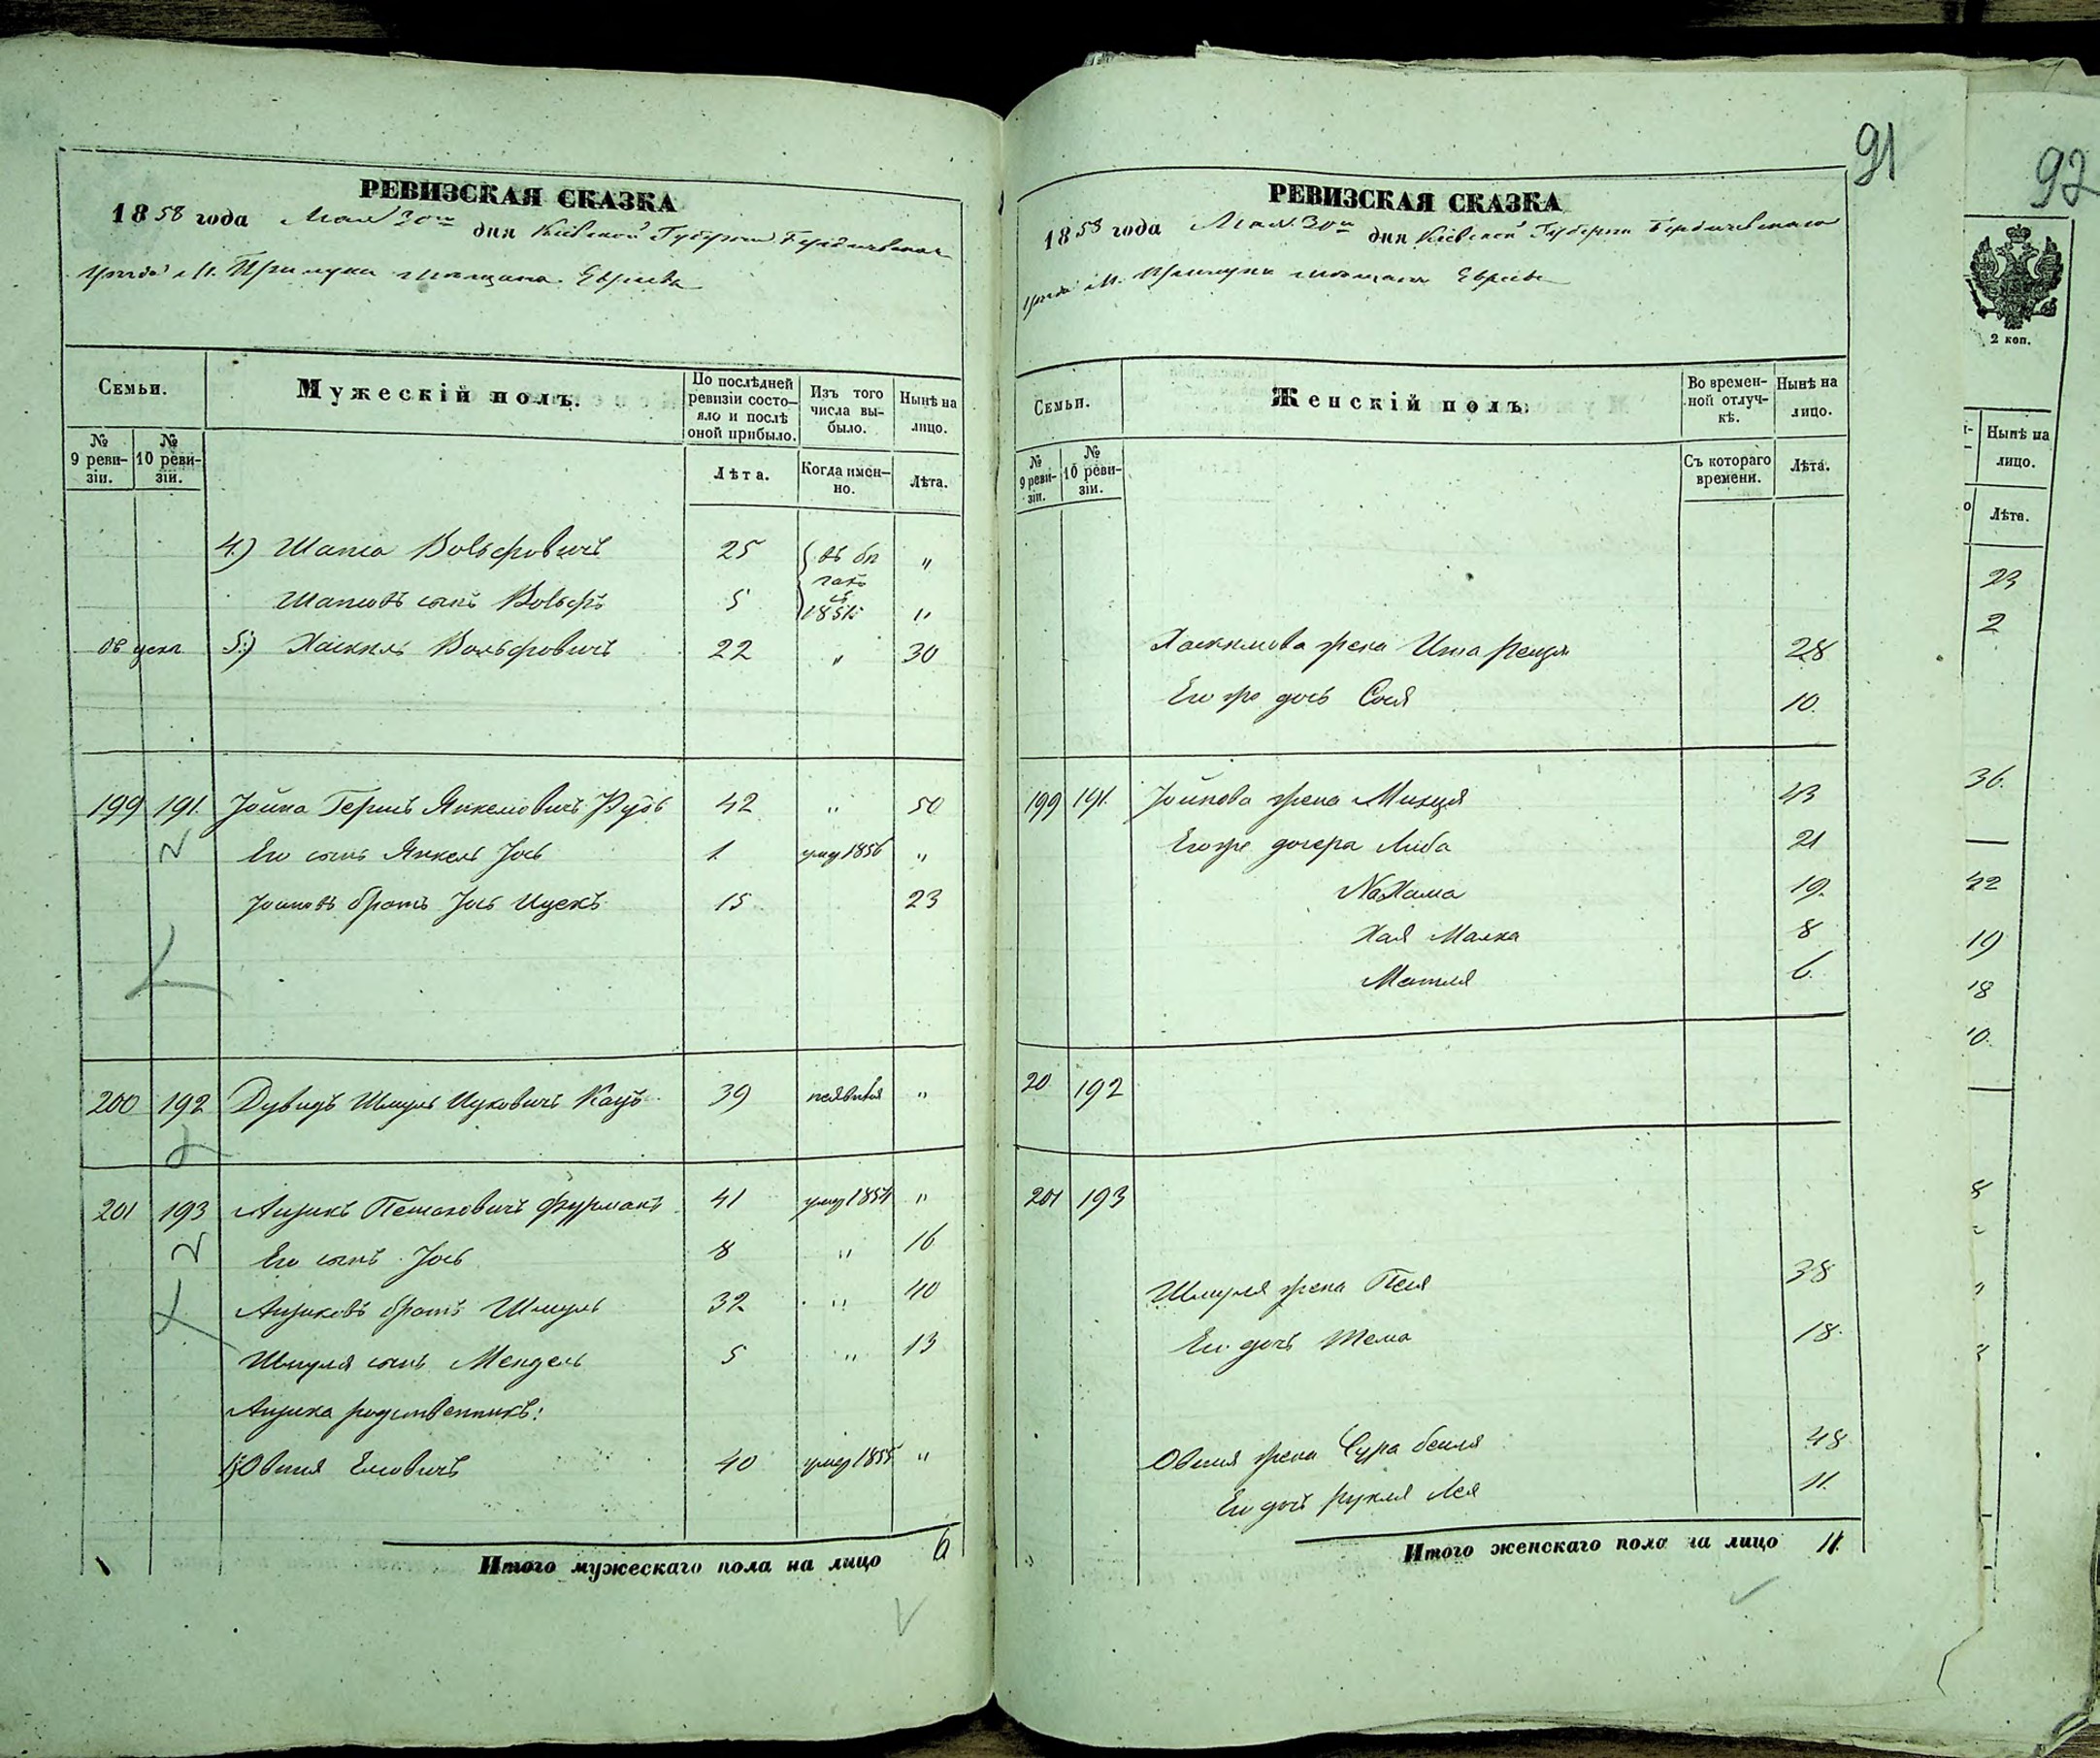 91
92
РЕВИЗСКАЯ СКАЗКА
1858 года Мая 30го дня Кіевской Губерніи Бердичевскаго
уѣзда м. Прилуки мѣщанъ Евреевъ
Семьи.
Мужескій полъ.
По послѣдней ревизіи состояло и послѣ оной прибыло.
Изъ того числа выбыло.
Нынѣ на лицо.
№ 9 ревизіи.
№ 10 ревизіи.
Лѣта.
Когда именно.
Лѣта.
4) Шапса Вольфовичъ 25 въ бѣгахъ съ 1851 "
Шапсовъ сынъ Вольфъ 5 "
5) Хаскель Вольфовичъ 22 " 30
199 191. Іойна Гершъ Янкелевичъ 42 " 50
Его сынъ Янкель Іось 1 умер 1856 "
Іойновъ братъ Іось Ицекъ 15 23
200 192 Дувидъ Шмуль Ицковичъ Кацъ 39 неявился "
201 193 Анзикъ Петаховичъ Фурманъ 41 умер 1854 "
Его сынъ Іось 8 " 16
Анзиковъ братъ Шмуль 32 " 40
Шмуля сынъ Мендель 5 " 13
Анзика родственникъ:
1) Овшія Елевичъ 40 умер 1855 "
Итого мужескаго пола на лицо 6
РЕВИЗСКАЯ СКАЗКА
1858 года Мая 30го дня Кіевской Губерніи Бердичевскаго
уѣзда м. Прилуки мѣщанъ Евреевъ
Семьи.
Женскій полъ.
Во временной отлучкѣ.
Нынѣ на лицо.
№ 9 ревизіи.
№ 10 ревизіи.
Съ котораго времени.
Лѣта.
Хаскелова жена Ита 28
Его же дочь Сося 10.
199 191. Іойнова жена 43
Его же дочера Либа 21
Нахама 19.
Хая Малка 8
Матля 6.
20 192
201 193
Шмуля жена Песя 38
Его дочь Тема 18.
Овшія жена Сура бейля 48
Его дочь рухля Лея 11.
Итого женскаго пола на лицо 11.
2 коп.
Нынѣ на лицо.
Лѣта.
23
2
36.
22
19
18
10.
8